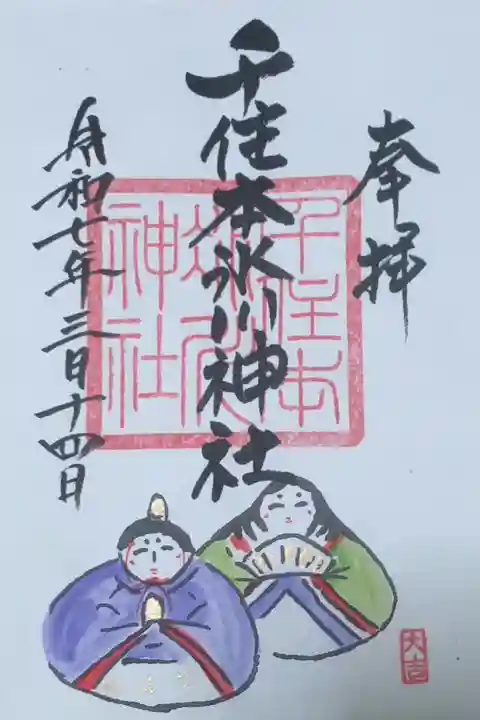 奉拝
千住本氷川神社
令和七年三月十四日
千住本
氷川
神社
大吉